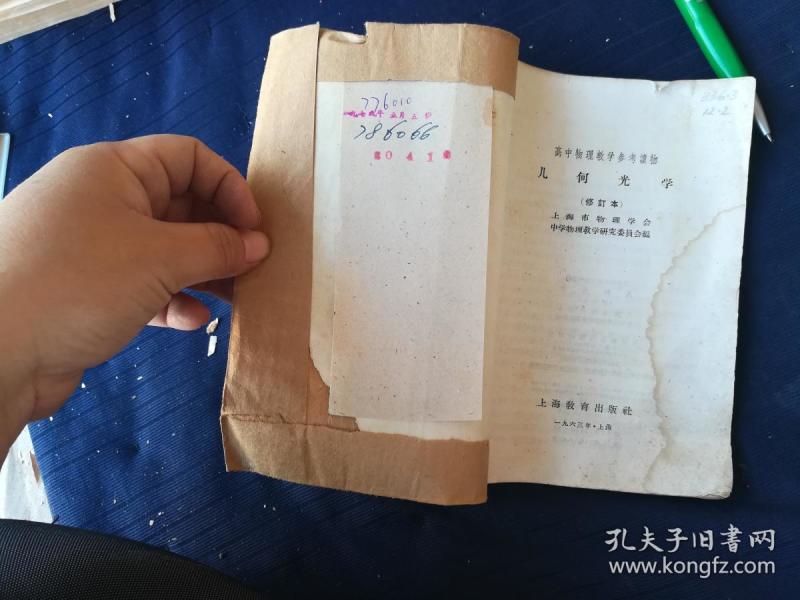 776010
一九七四年 五月 五 日
786066
80416
236.3
12.2
高中物理教学参考讀物
几何光学
(修訂本)
上海市物理学会
中学物理教学研究委員会編
上海教育出版社
一九六三年·上海
孔夫子旧書网
www.kongfz.com